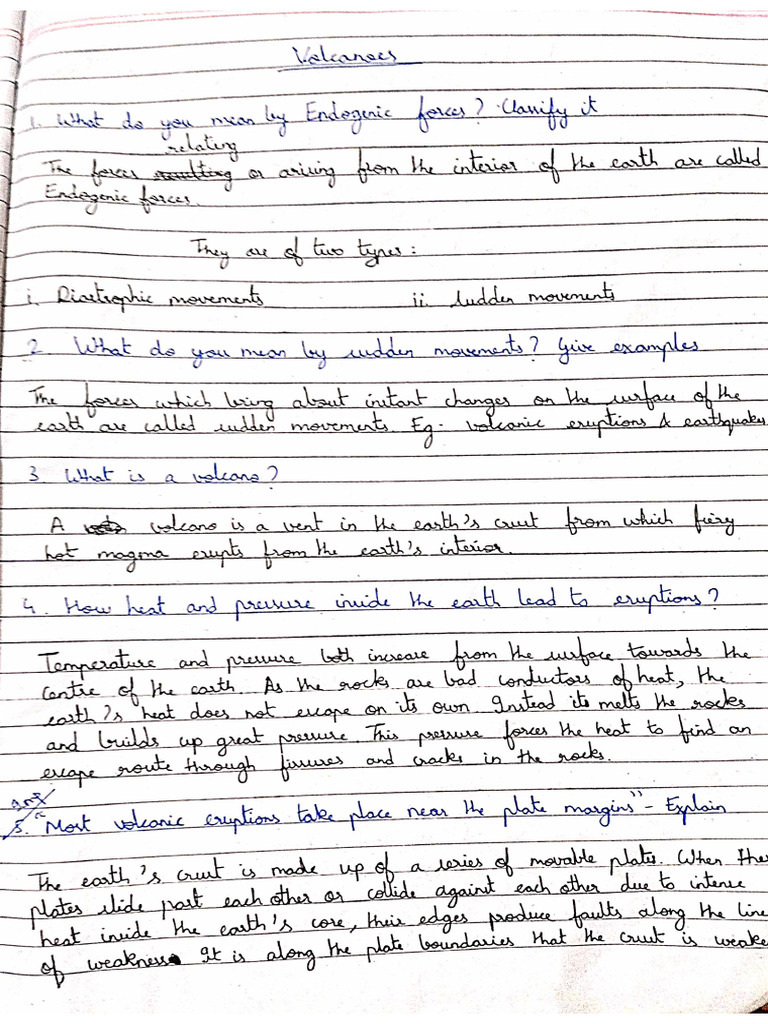 Volcanoes
1. What do you mean by Endogenic forces? Classify it
relating
The forces resulting or arising from the interior of the earth are called
Endogenic forces.
They are of two types:
i. Diastrophic movements ii. sudden movements
2. What do you mean by sudden movements? Give examples
The forces which bring about instant changes on the surface of the
earth are called sudden movements. Eg. volcanic eruptions & earthquakes
3. What is a volcano?
A volcano is a vent in the earth's crust from which fiery
hot magma erupts from the earth's interior.
4. How heat and pressure inside the earth lead to eruptions?
Temperature and pressure both increase from the surface towards the
centre of the earth. As the rocks are bad conductors of heat, the
earth's heat does not escape on its own. Instead its melts the rocks
and builds up great pressure. This pressure forces the heat to find an
escape route through fissures and cracks in the rocks.
5. "Most volcanic eruptions take place near the plate margins" - Explain
The earth's crust is made up of a series of movable plates. When the
plates slide past each other or collide against each other due to intense
heat inside the earth's core, their edges produce faults along the line
of weakness. It is along the plate boundaries that the crust is weake